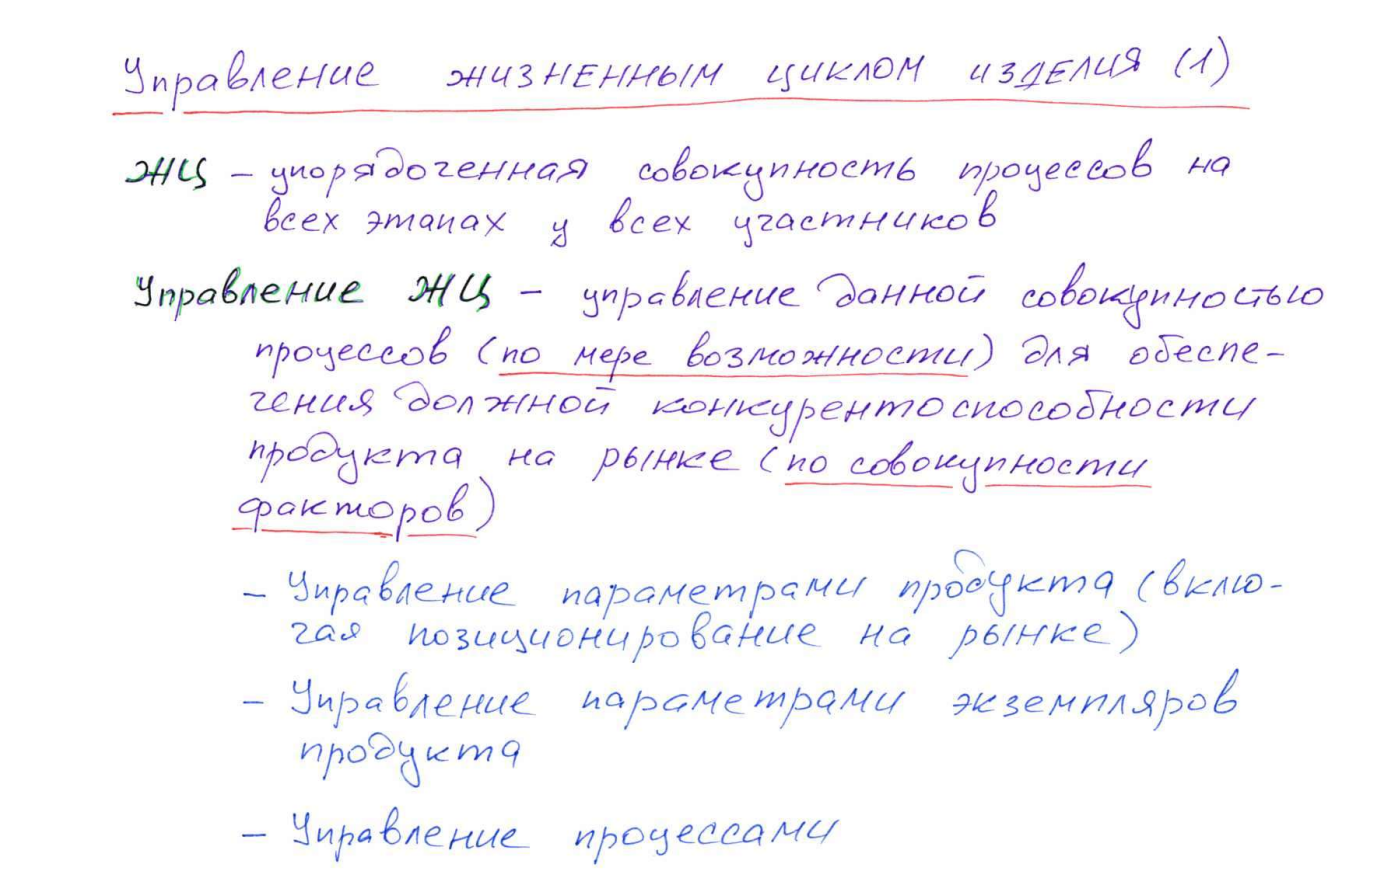 Управление жизненным циклом изделия (1)
ЖЦ – упорядоченная совокупность процессов на
всех этапах у всех участников
Управление ЖЦ – управление данной совокупностью
процессов (по мере возможности) для обеспе-
чения должной конкурентоспособности
продукта на рынке (по совокупности
факторов)
– Управление параметрами продукта (вклю-
чая позиционирование на рынке)
– Управление параметрами экземпляров
продукта
– Управление процессами